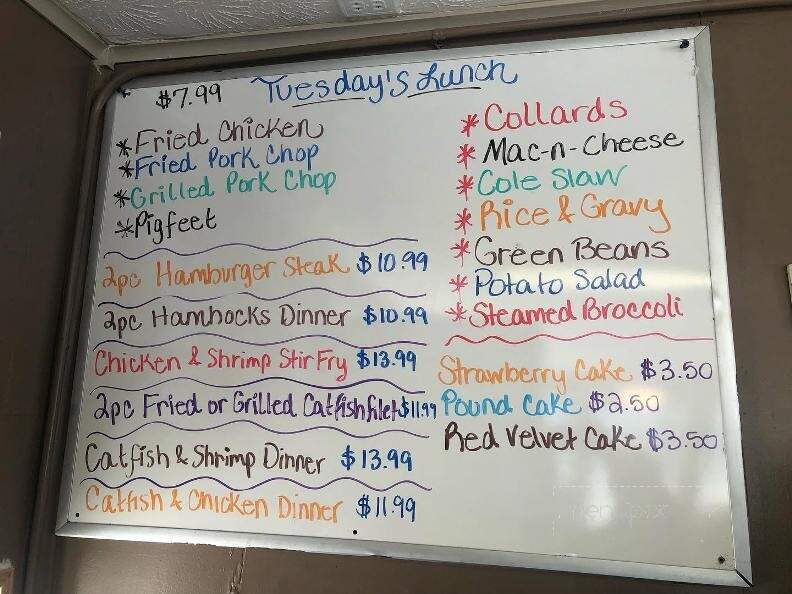 $7.99 Tuesday's Lunch
*Fried Chicken
*Fried Pork Chop
*Grilled Pork Chop
*Pigfeet
2pc Hamburger Steak $10.99
2pc Hamhocks Dinner $10.99
Chicken & Shrimp Stir Fry $13.99
2pc Fried or Grilled Catfish filet $11.99
Catfish & Shrimp Dinner $13.99
Catfish & Chicken Dinner $11.99
*Collards
*Mac-n-Cheese
*Cole Slaw
*Rice & Gravy
*Green Beans
*Potato Salad
*Steamed Broccoli
Strawberry Cake $3.50
Pound Cake $2.50
Red Velvet Cake $3.50